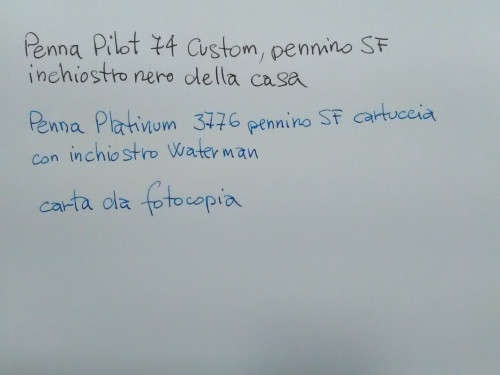 Penna Pilot 74 Custom, pennino SF
inchiostro nero della casa
Penna Platinum 3776 pennino SF cartuccia
con inchiostro Waterman
carta da fotocopia